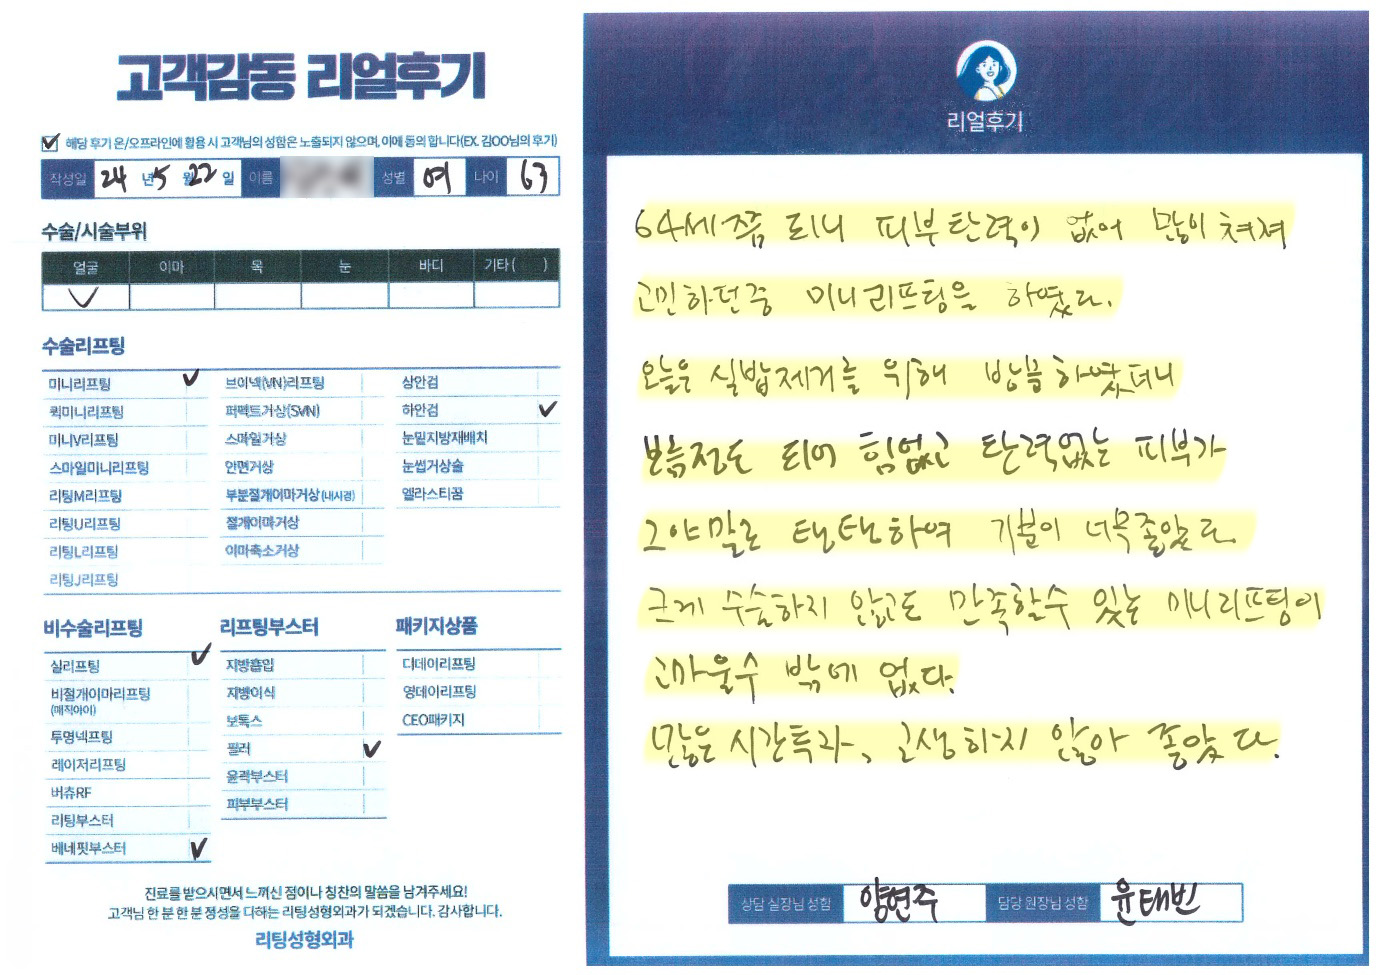 고객감동 리얼후기
해당 후기 온/오프라인에 활용 시 고객님의 성함은 노출되지 않으며, 이에 동의 합니다(EX. 김OO님의 후기)
작성일 24 년 5 월 22 일 이름 성별 여 나이 63
수술/시술부위
얼굴 이마 목 눈 바디 기타( )
수술리프팅
미니리프팅 브이넥(VN)리프팅 상안검
퀵미니리프팅 퍼펙트거상(SVN) 하안검
미니V리프팅 스마일거상 눈밑지방재배치
스마일미니리프팅 안면거상 눈썹거상술
리팅M리프팅 부분절개이마거상(내시경) 엘라스티꿈
리팅U리프팅 절개이마거상
리팅L리프팅 이마축소거상
리팅J리프팅
비수술리프팅 리프팅부스터 패키지상품
실리프팅 지방흡입 디데이리프팅
비절개이마리프팅 지방이식 영데이리프팅
(매직아이) 보톡스 CEO패키지
투명넥프팅 필러
레이저리프팅 윤곽부스터
버츄RF 피부부스터
리팅부스터
베네핏부스터
진료를 받으시면서 느끼신 점이나 칭찬의 말씀을 남겨주세요!
고객님 한 분 한 분 정성을 다하는 리팅성형외과가 되겠습니다. 감사합니다.
리팅성형외과
리얼후기
64세쯤 되니 피부탄력이 없어 많이 쳐져
고민하던중 미니리프팅을 하였다.
오늘은 실밥제거를 위해 방문하였더니
보름정도 되어 힘없고 탄력없는 피부가
그야말로 탱탱하여 기분이 너무좋았다.
크게 수술하지 않고도 만족할수 있는 미니리프팅이
고마울수 밖에 없다.
많은 시간투자, 고생하지 않아 좋았다.
상담 실장님 성함 양현주 담당 원장님 성함 윤태빈